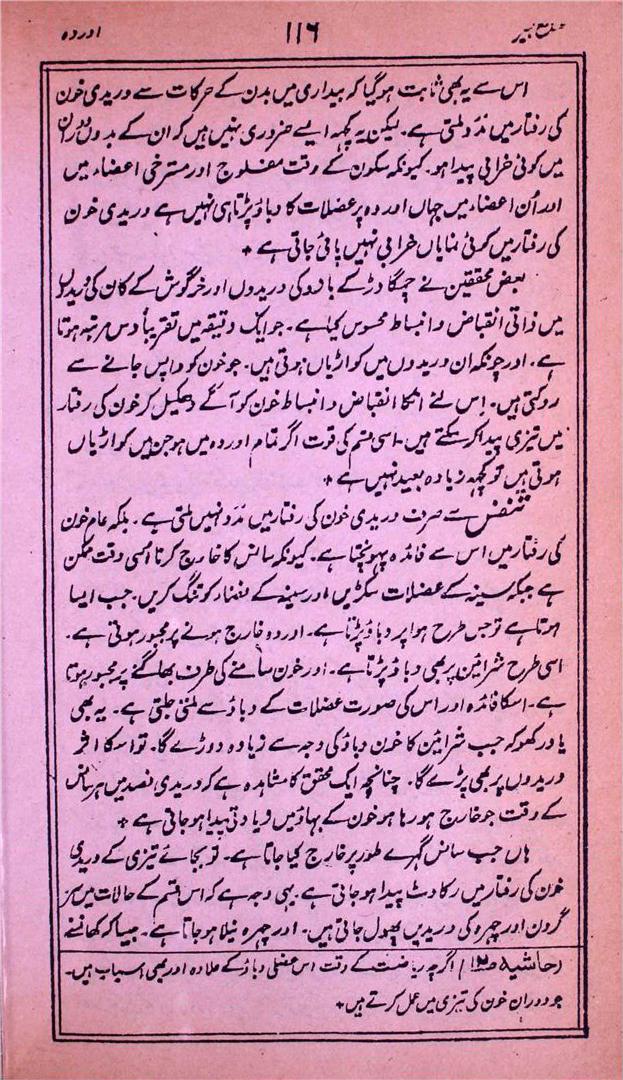 اوردہ
۱۱۶
کبیر
اس سے یہ بھی ثابت ہوگیا کہ بیداری میں بدن کے حرکات سے وریدی خون
کی رفتار میں مدد ملتی ہے۔ لیکن یہ کچھ ایسے ضروری نہیں ہیں کہ ان کے بدوں دوران
میں کوئی خرابی پیدا ہو۔ کیونکہ سکون کے وقت مفلوج اور مسترخی اعضاء میں
اور اُن اعضاء میں جہاں اوردہ پر عضلات کا دباؤ پڑتا ہی نہیں ہے وریدی خون
کی رفتار میں کوئی نمایاں خرابی نہیں پائی جاتی ہے ٭
بعض محققین نے چمگادڑ کے بازو کی وریدوں اور خرگوش کے کان کی وریدوں
میں ذاتی انقباض و انبساط محسوس کیا ہے۔ جو ایک دقیقہ میں تقریباً دس مرتبہ ہوتا
ہے۔ اور چونکہ ان وریدوں میں کواڑیاں ہوتی ہیں۔ جو خون کو واپس جانے سے
روکتی ہیں۔ اِس لئے انکا انقباض و انبساط خون کو آگے دھکیل کر خون کی رفتار
میں تیزی پیدا کر سکتے ہیں۔ اسی قسم کی قوت اگر تمام اوردہ میں ہو جن میں کواڑیاں
ہوتی ہیں تو کچھ زیادہ بعید نہیں ہے ٭
تنفس سے صرف وریدی خون کی رفتار میں مدد نہیں ملتی ہے۔ بلکہ عام خون
کی رفتار میں اس سے فائدہ پہونچتا ہے۔ کیونکہ سانس کا خارج کرنا اُسی وقت ممکن
ہے جبکہ سینہ کے عضلات سکڑیں اور سینہ کے فضاء کو تنگ کریں۔ جب ایسا
ہوتا ہے تو جس طرح ہوا پر دباؤ پڑتا ہے۔ اور وہ خارج ہونے پر مجبور ہوتی ہے۔
اسی طرح شرائین پر بھی دباؤ پڑتا ہے۔ اور خون سامنے کی طرف بھاگنے پر مجبور ہوتا
ہے۔ اسکا فائدہ اور اس کی صورت عضلات کے دباؤ سے ملتی جلتی ہے۔ یہ بھی
یاد رکھو کہ جب شرائین کا خون دباؤ کی وجہ سے زیادہ دوڑے گا۔ تو اسکا اثر
وریدوں پر بھی پڑے گا۔ چنانچہ ایک محقق کا مشاہدہ ہے کہ وریدی فصد میں ہر سانس
کے وقت جو خارج ہو رہا ہو خون کے بہاؤ میں زیادتی پیدا ہو جاتی ہے ٭
ہاں جب سانس گہرے طور پر خارج کیا جاتا ہے۔ تو بجائے تیزی کے وریدی
خون کی رفتار میں رکاوٹ پیدا ہو جاتی ہے۔ یہی وجہ ہے کہ اس قسم کے حالات میں سر
گردن اور چہرہ کی وریدیں پھول جاتی ہیں۔ اور چہرہ نیلا ہو جاتا ہے۔ جیسا کہ کھانسنے
(حاشیہ صـ۱۲) اگرچہ ریاضت کے وقت اس عضلی دباؤ کے علاوہ اور بھی اسباب ہیں۔
جو دوران خون کی تیزی میں عمل کرتے ہیں ٭